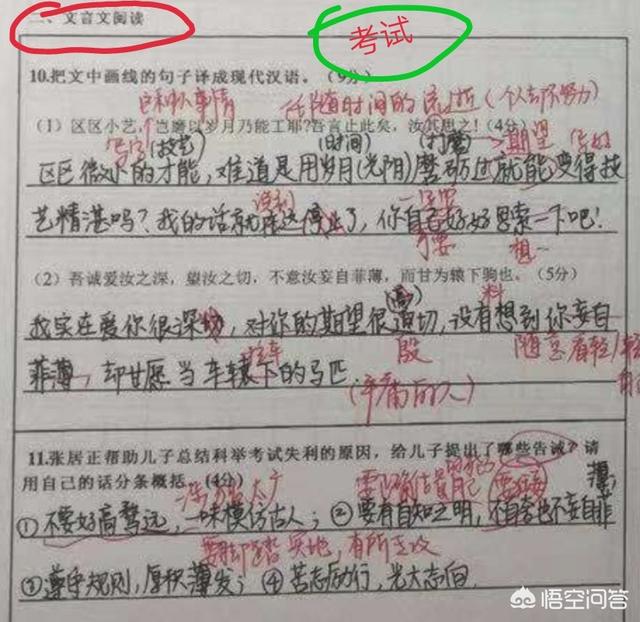 二、文言文阅读
考试
10.把文中画线的句子译成现代汉语。(9分)
任随时间的流逝(个人去不努力)
(1)区区小艺,岂磨以岁月乃能工耶?吾言止此矣,汝其思之!(4分)
(技艺) (时间) 期望
区区微小的才能,难道是用岁月(光阴)磨砺过就能变得技
艺精湛吗?我的话就在这停止了,你自己好好思索一下吧!
一定要
想一
(2)吾诚爱汝之深,望汝之切,不意汝妄自菲薄,而甘为辕下驹也。(5分)
料
我实在爱你很深切,对你的期望很 切,没有想到你妄自
殷 随意看轻
菲薄,却甘愿当车辕下的马匹
(平庸的人)
11.张居正帮助儿子总结科举考试失利的原因,给儿子提出了哪些告诫?请
用自己的话分条概括。(4分)
①不要好高骛远,一味模仿古人;②要有自知之明,不自夸也不妄自菲
薄;
要脚踏实地,有所专攻
③遵守规则,厚积薄发;④苦志励行,光大志向.
悟空问答